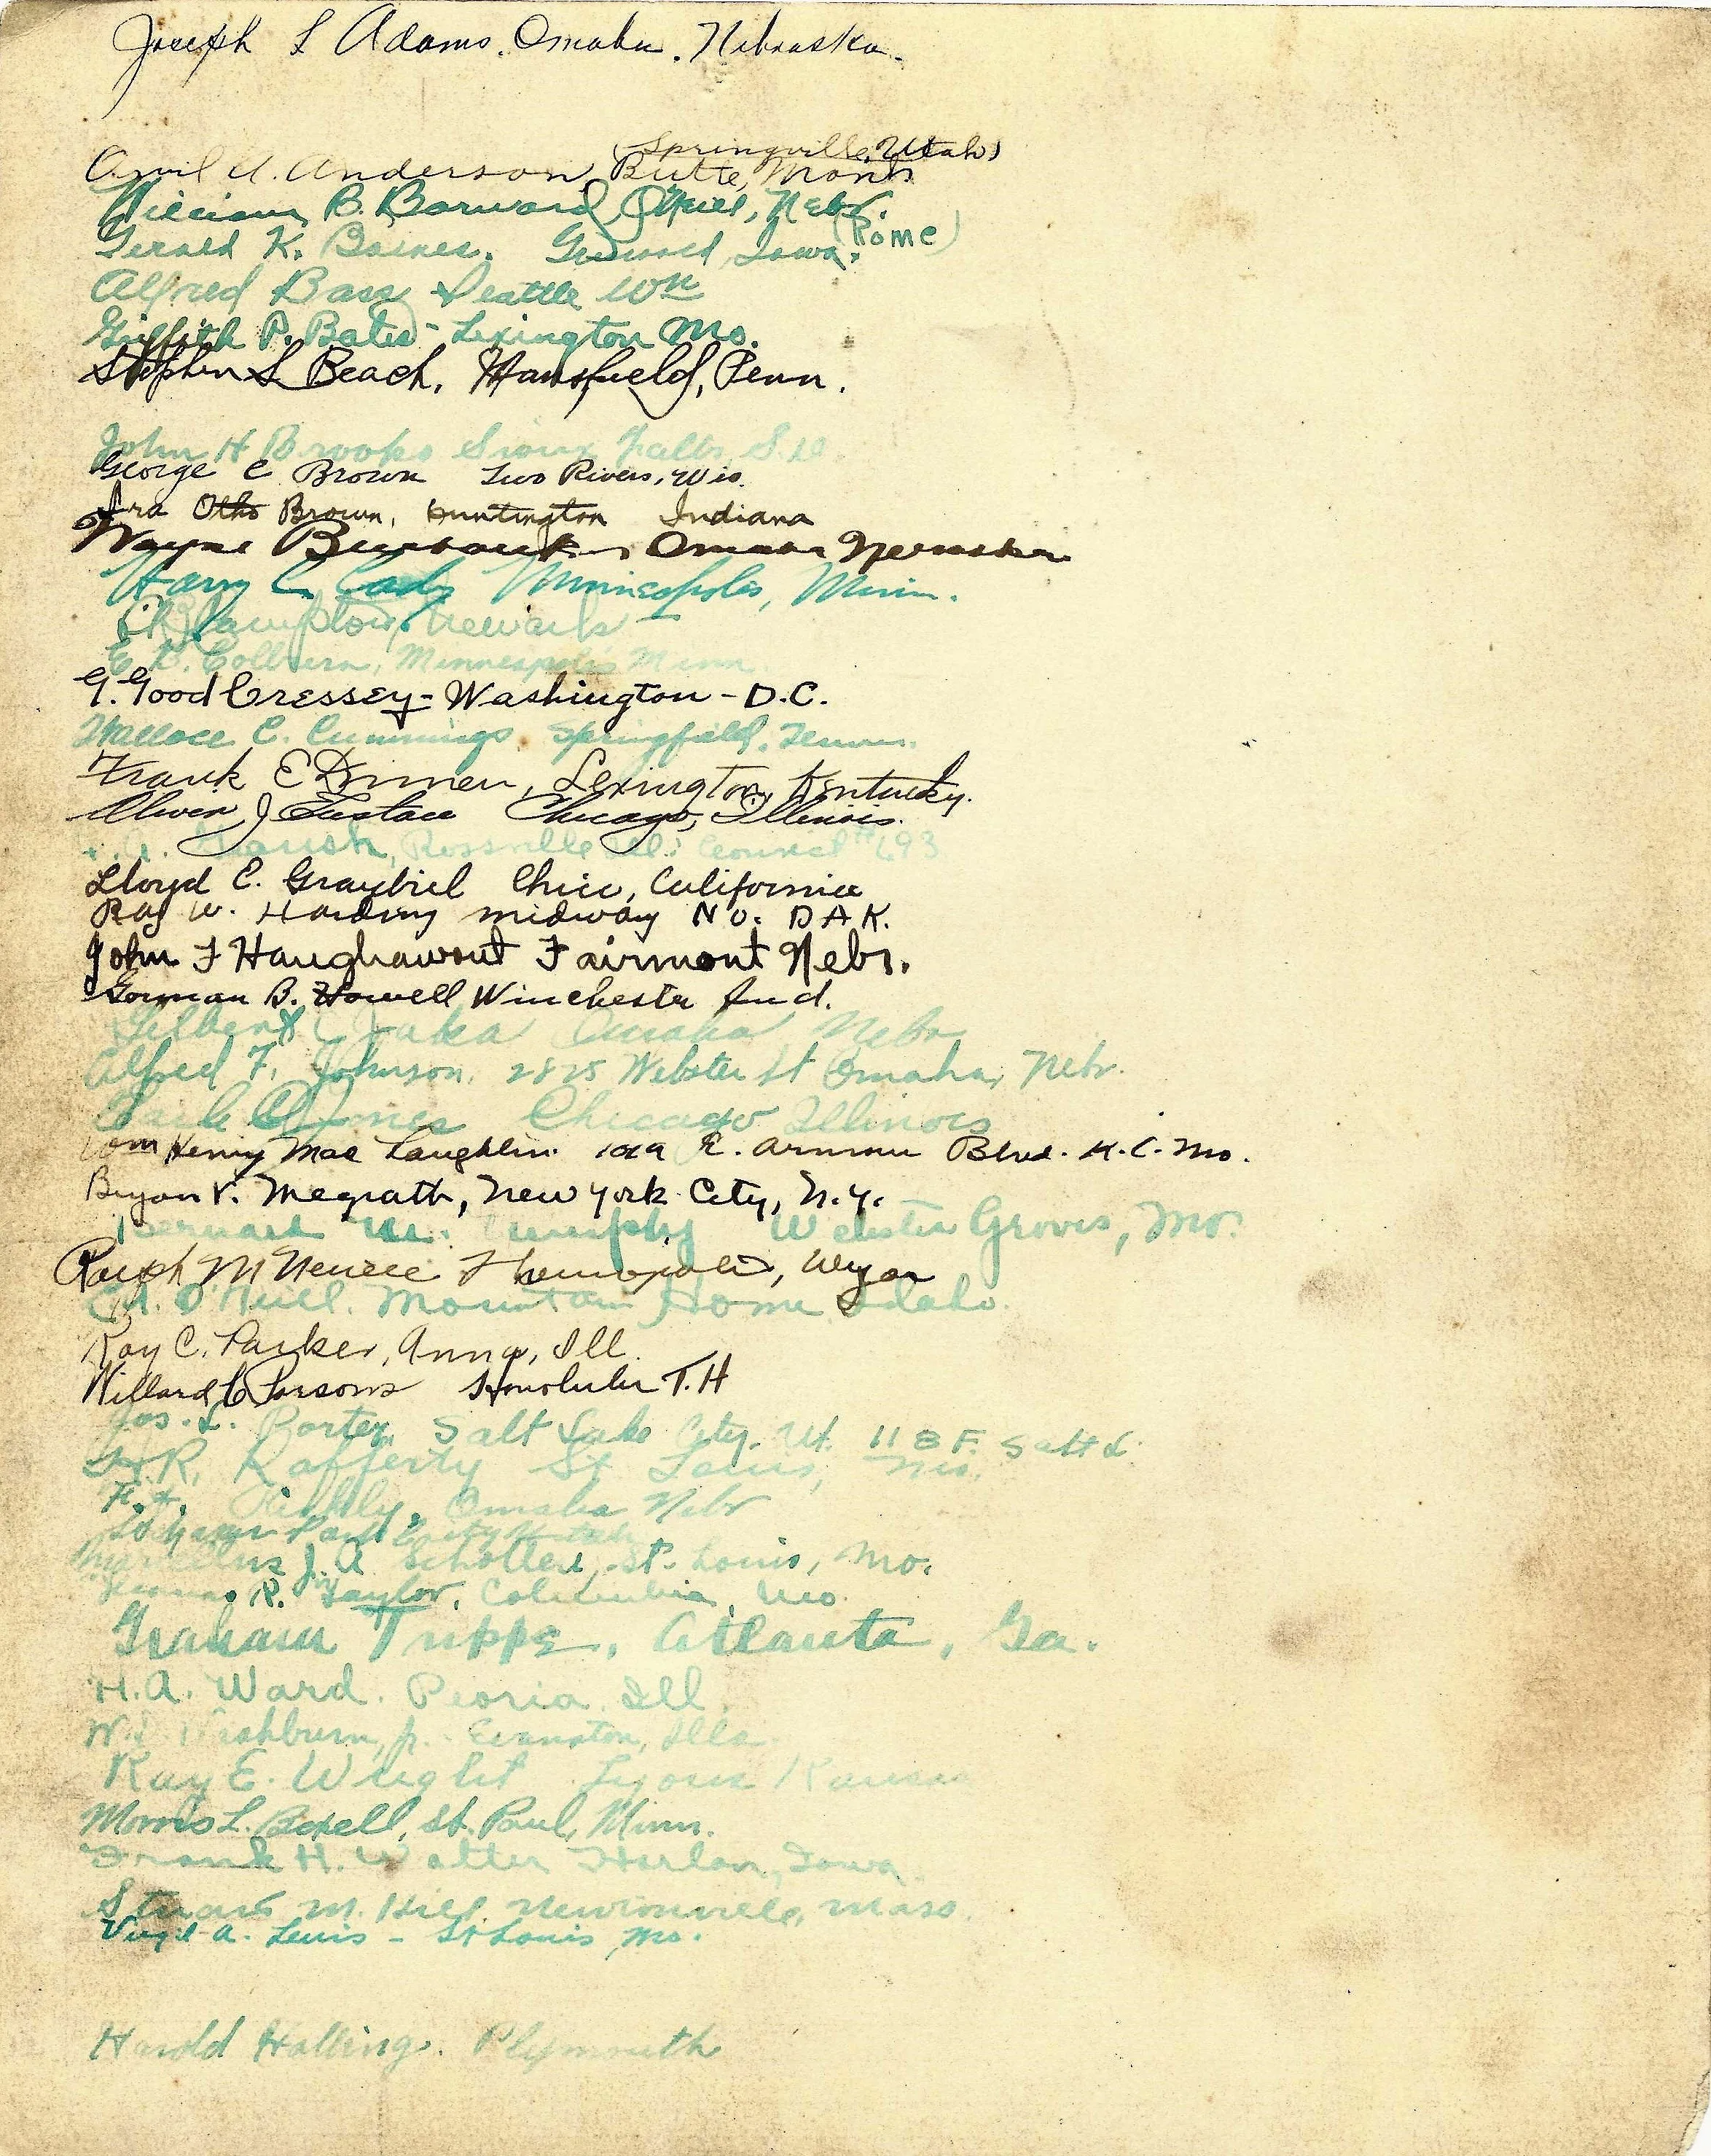 Joseph L Adams. Omaha. Nebraska.
(Springville, Utah)
A. Anderson, Butte, Mont.
William B. Barnard, O'Neill, Nebr.
(Rome)
Gerald K. Baines. Iowa.
Alfred Bass Seattle Wn
Griffith P. Bates - Lexington Mo.
Stephen L Beach, Mansfield, Penn.
John H Brooks Sioux Falls, S.D.
George C Brown Two Rivers, Wis.
Ira Otho Brown, Huntington Indiana
Wayne Burbank, Omaha Nebraska
Harry C. Cady Minneapolis, Minn.
Newark
E. D. Colburn, Minneapolis Minn.
G. Good Cressey - Washington - D.C.
Wallace C. Cummings. Springfield, Tenn.
Frank E Lexington, Kentucky.
Oliver J Eustace Chicago, Illinois.
Rossville Ill. Council # 693
Lloyd E. Graybiel Chico, California
Ray W. Harding Midway No. DAK.
John F Haughawout Fairmont Nebr.
Gorman B. Howell Winchester Ind.
Gilbert Omaha Nebr
Alfred F. Johnson, 2825 Webster St Omaha, Nebr.
Jones Chicago Illinois
Wm Henry Mac Laughlin. 1019 E. Armour Blvd. K.C. Mo.
Bryan V. Megrath, New York City, N.Y.
Bernard M. Murphy Webster Groves, Mo.
Ralph Thermopolis, Wyo
O'Neill. Mountain Home Idaho.
Ray C. Parker, Anna, Ill.
Willard C Parsons Honolulu T.H
Jos. L. Porter, Salt Lake City. Ut. 118 F. Salt L.
R. Rafferty St Louis, Mo.
F. Omaha Nebr
Park City Utah
Marcellus J. A. Schotters, St. Louis, Mo.
R. Taylor, Columbia, Mo.
Graham Trippe, Atlanta, Ga.
H. A. Ward. Peoria, Ill.
Washburn, Jr. - Evanston, Ills
Ray E. Wright Lyons Kansas
Morris L. Bexell, St. Paul, Minn.
Frank H. Walter Harlan, Iowa
Stuart M. Hill Newtonville, Mass.
Virgil A. Lewis - St Louis, Mo.
Harold Halling. Plymouth